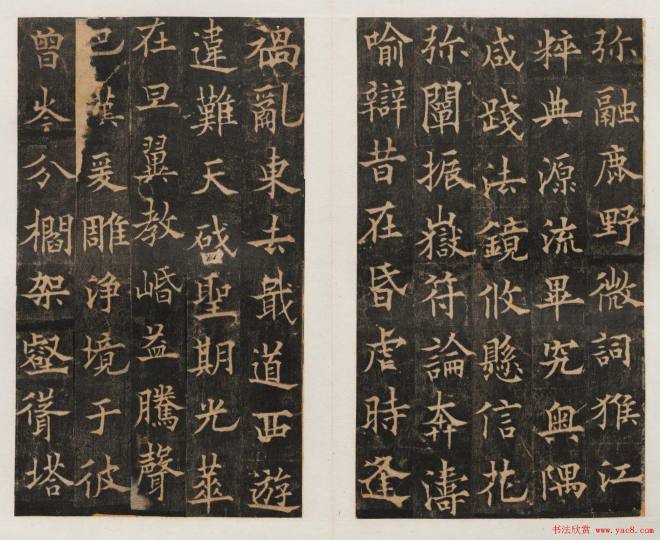 弥融鹿野微詞猴江
粹典源流畢究奥隅
咸踐法鏡攸懸信花
弥闡振嶽符論奔濤
喻辯昔在昏虐時逢
禍亂東去戢道西遊
違難天啓聖期光華
在旦翼教崏益騰聲
巴漢爰雕淨境于彼
曾岑分櫩架壑塔
书法欣赏 www.yac8.com